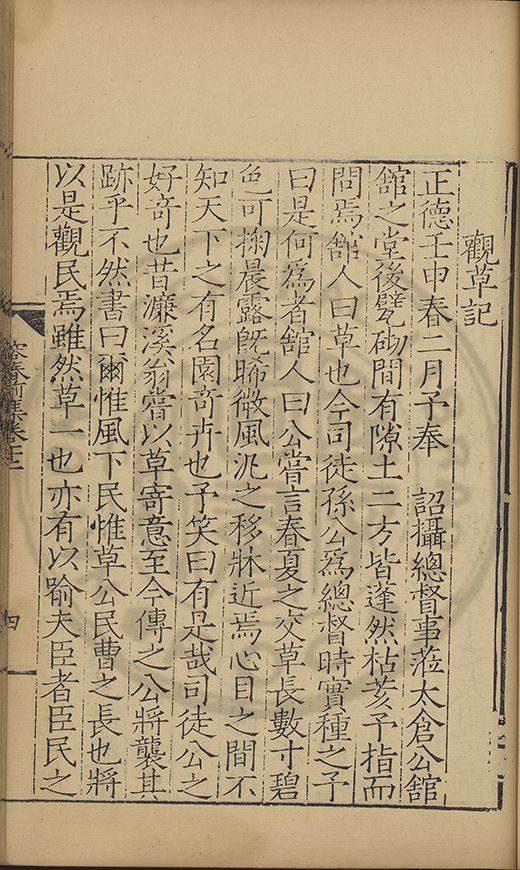 觀草記
正德壬申春二月予奉　詔攝總督事蒞太倉公館
館之堂後甓砌間有隙土二方皆蓬然枯荄予指而
問焉館人曰草也今司徒孫公為總督時實種之予
曰是何為者館人曰公嘗言春夏之交草長數寸碧
色可掬晨露既晞微風汎之移牀近焉心目之間不
知天下之有名園奇卉也予笑曰有是哉司徒公之
好奇也昔濂溪翁窗以草寄意至今傳之公將襲其
跡乎不然書曰爾惟風下民惟草公民曹之長也將
以是觀民焉雖然草一也亦有以喻夫臣者臣民之
容春前集卷十三
四